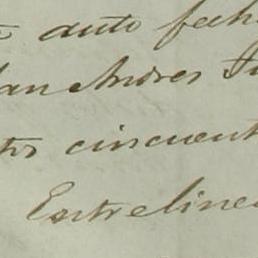 auto fech
San Andres Tu
tos cincuent
Entreline